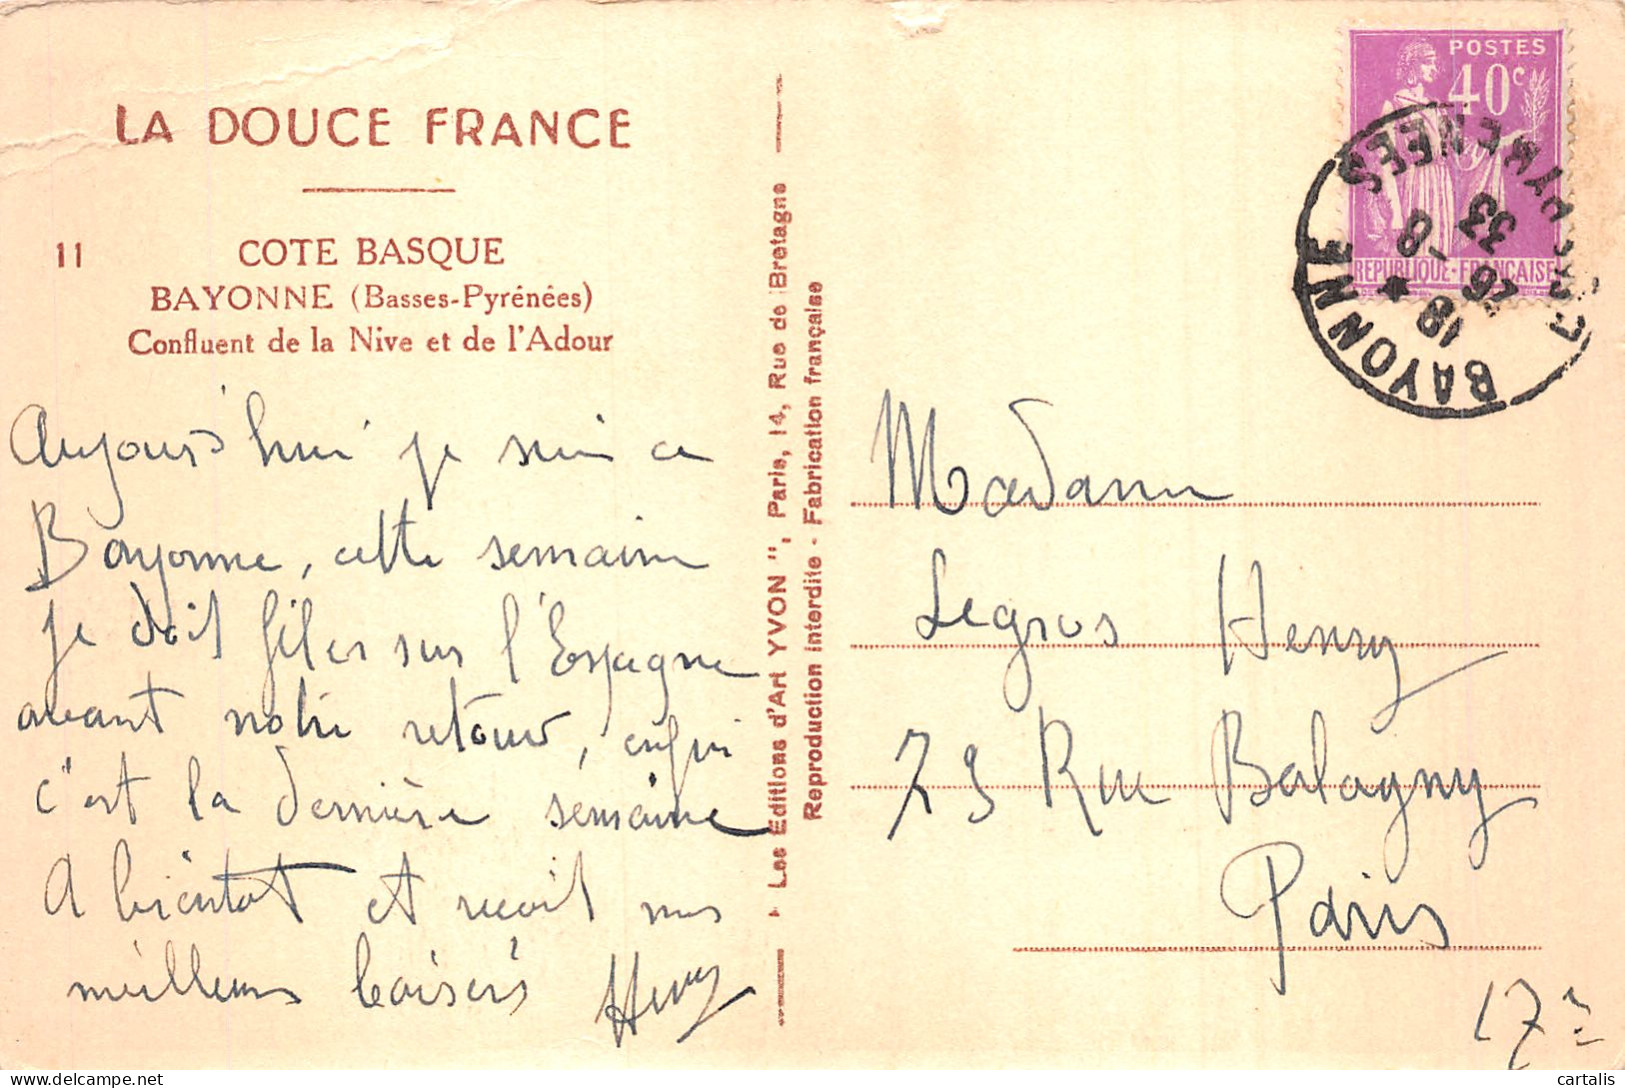 LA DOUCE FRANCE
11
COTE BASQUE
BAYONNE (Basses-Pyrénées)
Confluent de la Nive et de l'Adour
Aujourd'hui je suis a
Bayonne, cette semaine
je dois filer sur l'Espagne
avant notre retour, enfin
c'est la dernière semaine
A bientot et reçoit mes
meilleurs baisers Henry
Les Editions d'Art YVON", Paris, 14, Rue de Bretagne
Reproduction interdite - Fabrication française
POSTES
40c
REPUBLIQUE-FRANÇAISE
BAYONNE
PYRENEES
18
26 -8
33
Madame
Legros Henry
79 Rue Balagny
Paris
17e
cartalis